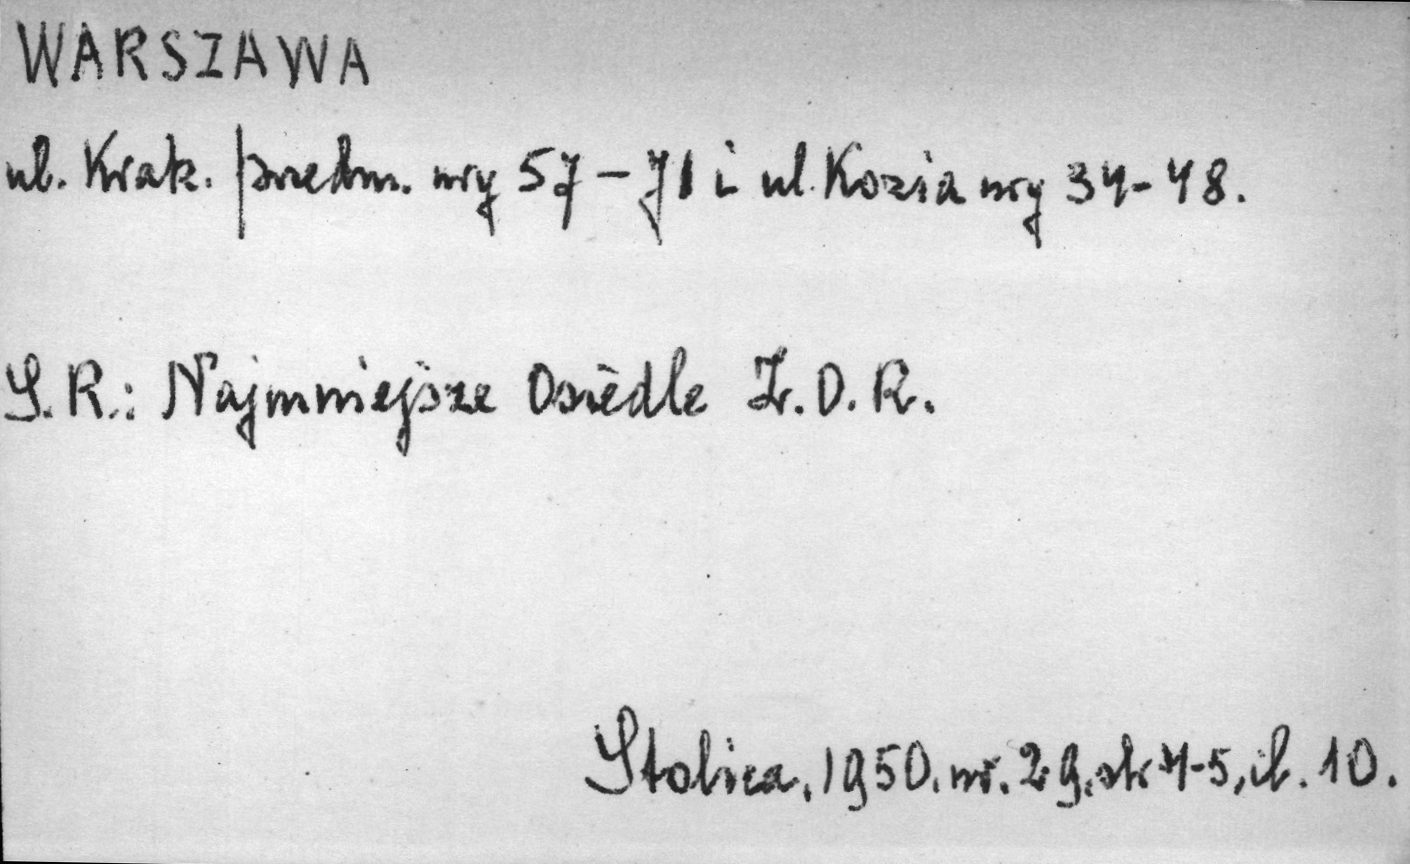 WARSZAWA
ul. Krak. przedm. nry 57-71 i ul. Kozia nry 34-48.
S. R.: Najmniejsze Osiedle Z. O. R.
Stolica, 1950. nr. 29. str 4-5, il. 10.